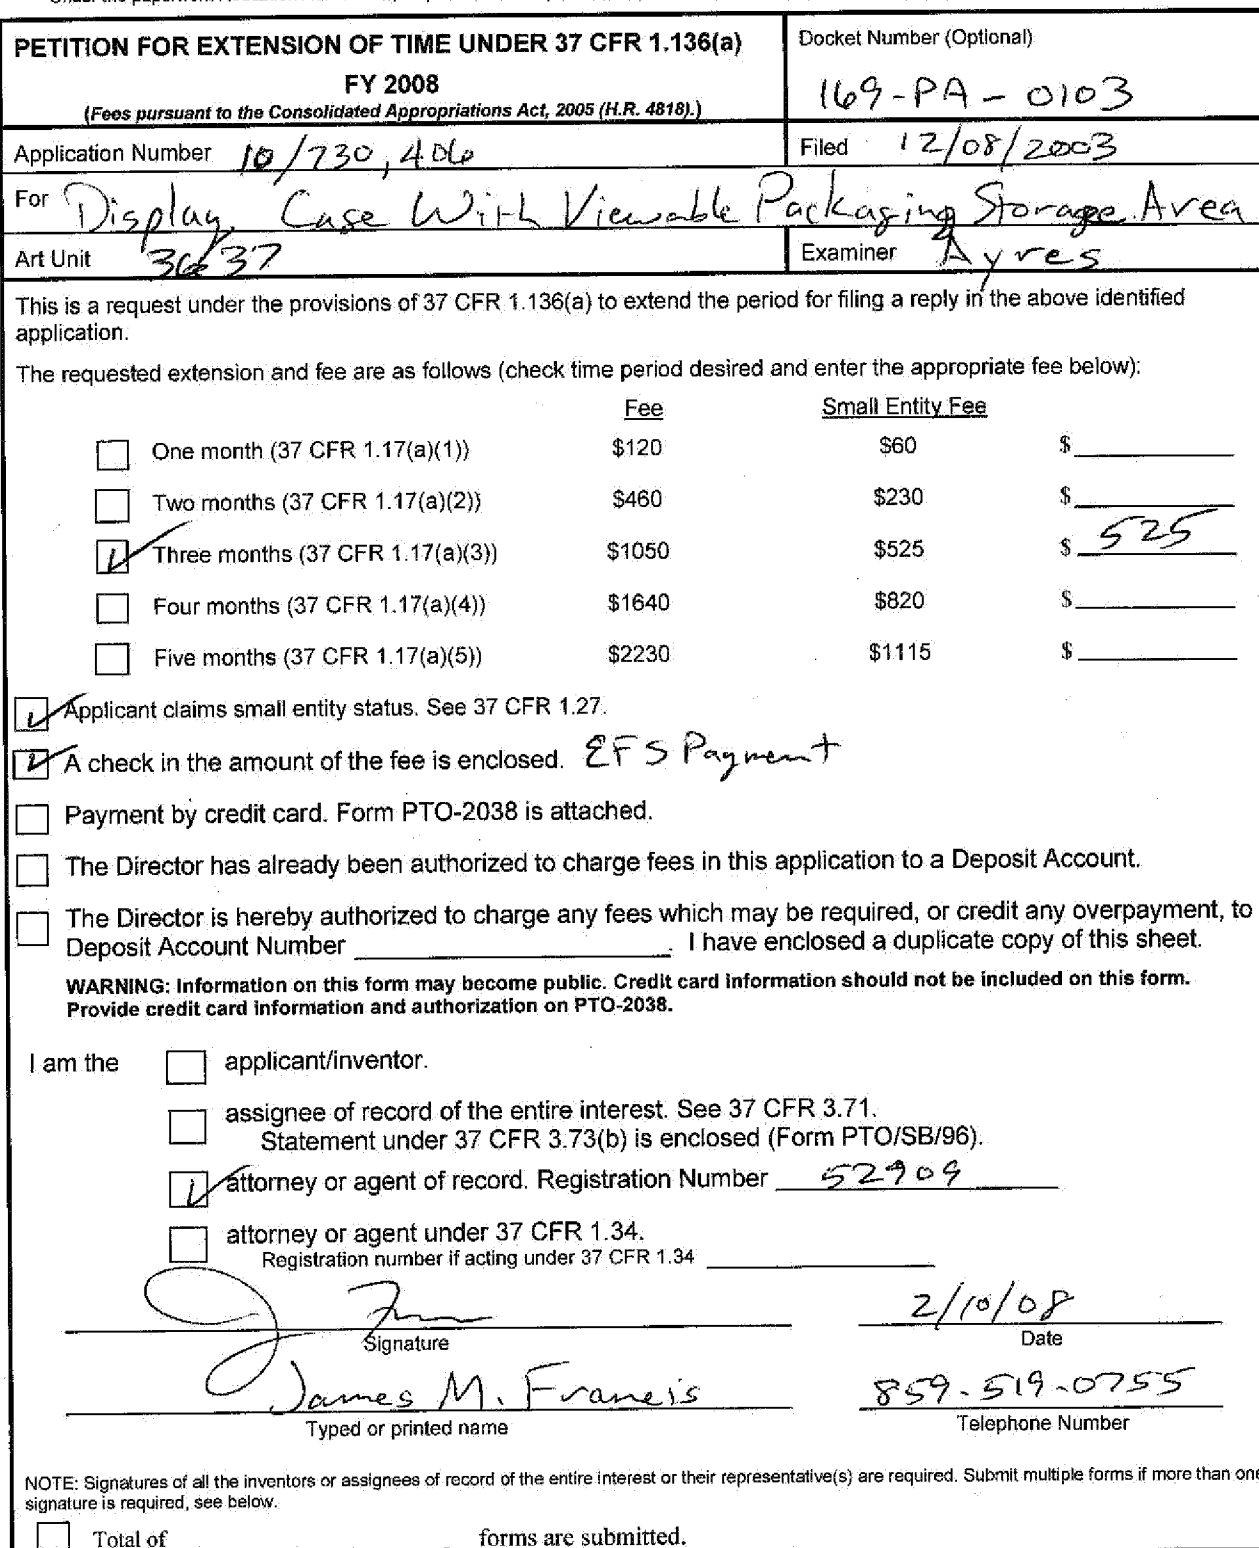 PETITION FOR EXTENSION OF TIME UNDER 37 CFR 1.136(a)
FY 2008
(Fees pursuant to the Consolidated Appropriations Act, 2005 (H.R. 4818).)
Docket Number (Optional)
169-PA-0103
Application Number 10/730,406
Filed 12/08/2003
For Display Case With Viewable Packaging Storage Area
Art Unit 3637
Examiner Ayres
This is a request under the provisions of 37 CFR 1.136(a) to extend the period for filing a reply in the above identified
application.
The requested extension and fee are as follows (check time period desired and enter the appropriate fee below):
Fee Small Entity Fee
One month (37 CFR 1.17(a)(1)) $120 $60 $
Two months (37 CFR 1.17(a)(2)) $460 $230 $
Three months (37 CFR 1.17(a)(3)) $1050 $525 $ 525
Four months (37 CFR 1.17(a)(4)) $1640 $820 $
Five months (37 CFR 1.17(a)(5)) $2230 $1115 $
Applicant claims small entity status. See 37 CFR 1.27.
A check in the amount of the fee is enclosed. EFS Payment
Payment by credit card. Form PTO-2038 is attached.
The Director has already been authorized to charge fees in this application to a Deposit Account.
The Director is hereby authorized to charge any fees which may be required, or credit any overpayment, to
Deposit Account Number . I have enclosed a duplicate copy of this sheet.
WARNING: Information on this form may become public. Credit card information should not be included on this form.
Provide credit card information and authorization on PTO-2038.
I am the applicant/inventor.
assignee of record of the entire interest. See 37 CFR 3.71.
Statement under 37 CFR 3.73(b) is enclosed (Form PTO/SB/96).
attorney or agent of record. Registration Number 52909
attorney or agent under 37 CFR 1.34.
Registration number if acting under 37 CFR 1.34
2/10/08
Signature Date
James M. Francis 859-519-0755
Typed or printed name Telephone Number
NOTE: Signatures of all the inventors or assignees of record of the entire interest or their representative(s) are required. Submit multiple forms if more than one
signature is required, see below.
Total of forms are submitted.